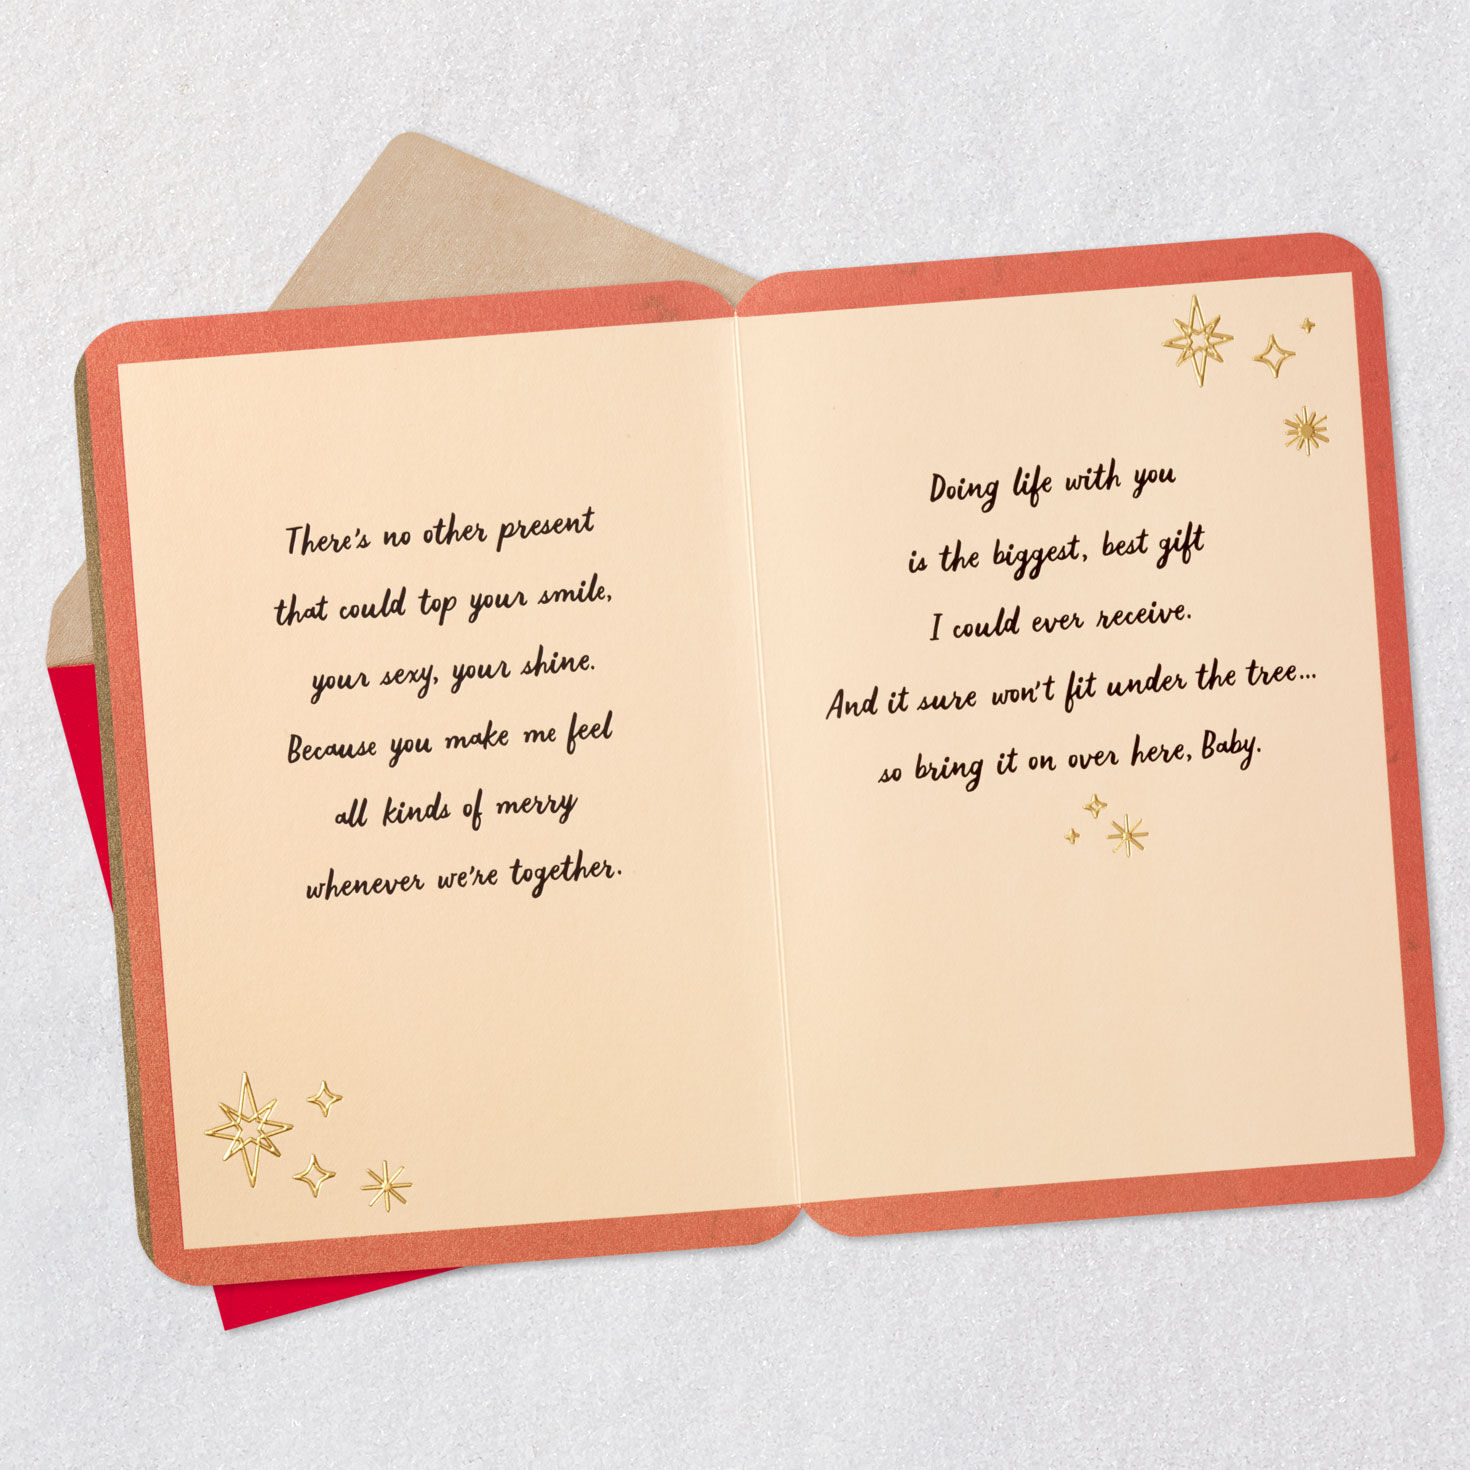 There's no other present
that could top your smile,
your sexy, your shine.
Because you make me feel
all kinds of merry
whenever we're together.
Doing life with you
is the biggest, best gift
I could ever receive.
And it sure won't fit under the tree...
so bring it on over here, Baby.